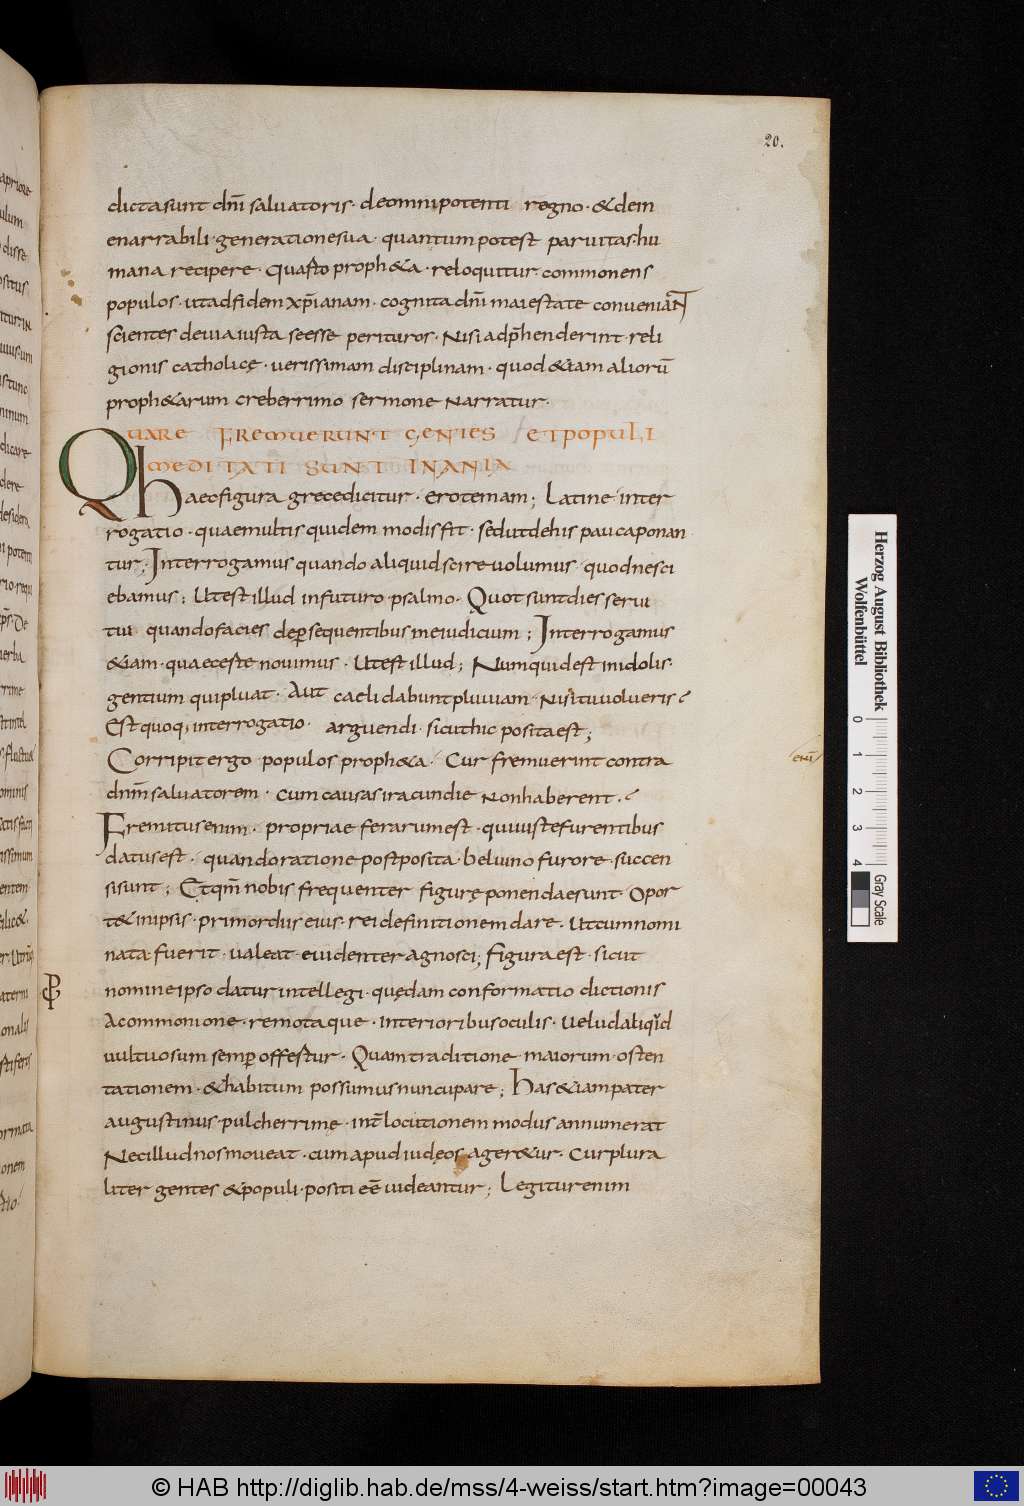 20.
dictasunt dn̄i saluatoris· deomnipotenti regno· &dein
enarrabili· generationesua· quantum potest paruitas·hu
mana recipere· Quafto proph&a· reloquitur· commonens
populos· utadfidem xp̄ianam· cognita dn̄i maiestate conueniant
scientes deuiaiusta seesse perituros· Nisi adp̄henderint· reli
gionis catholicę· uerissimam disciplinam· quod&iam aliorū
proph&arum creberrimo sermone Narratur·
QUARE FREMUERUNT GENTES ETPOPULI
MEDITATI SUNT INANIA
Haecfigura grecedicitur· erotemam; Latine inter
rogatio· quaemultis quidem modis fit· sedutdehis paucaponan
tur; Interrogamus quando aliquid scire uolumus· quodnesci
ebamus; Utest illud infuturo psalmo· Quot suntdies serui
tui quandofacies depsequentibus meiudicium; Interrogamus
&iam· quaeceste nouimus· Utest illud; Numquidest inidolis·
gentium quipluat· Aut caeli dabuntpluuiam· Nisituuolueris
Est quoq; interrogatio· arguendi· sicuthic positaest;
Corripit ergo populos proph&a· Cur fremuerint contra
dnm̄ saluatorem· cum causas iracundie Nonhaberent·
Fremitus enim· propriae ferarumest· quiiustefurentibus
datusest· quandoratione postposita· beluino furore· succen
sisunt; Etqm̄ nobis frequenter figurę ponendaesunt· Opor
t&inipsis· primordiis eius· rei definitionem dare· Utcumnomi
nata fuerit· ualeat· euidenter agnosci; Figura est· sicut
nomine ipso datur intellegi· quędam conformatio dictionis
Acommonione· remota que· interioribus oculis· Uelud aliqid
uultuosum semp offestur· Quam traditione maiorum· osten
tationem· &habitum possumus nuncupare; Has &iam pater
augustinus· pulcherrimę· int̄ locutionem modus annumerat
Necillud nos moueat· cum apud iudęos ager&ur· Cur plura
liter gentes &populi· positi eē uideantur; Legitur enim
Herzog August Bibliothek
Wolfenbüttel
0 1 2 3 4
Gray Scale
© HAB http://diglib.hab.de/mss/4-weiss/start.htm?image=00043